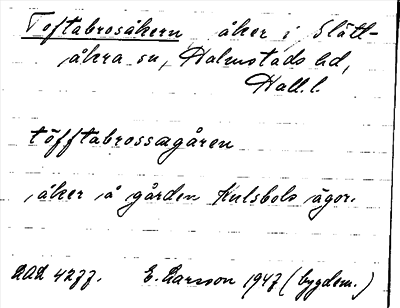 Toftabrosåkern åker i Slätt-
åkra sn, Halmstads hd,
Hall. l.
töfftabrossagåren
åker å gården Kulsbols ägor.
DAL 4277. E. Larsson 1947 (bygdem.)